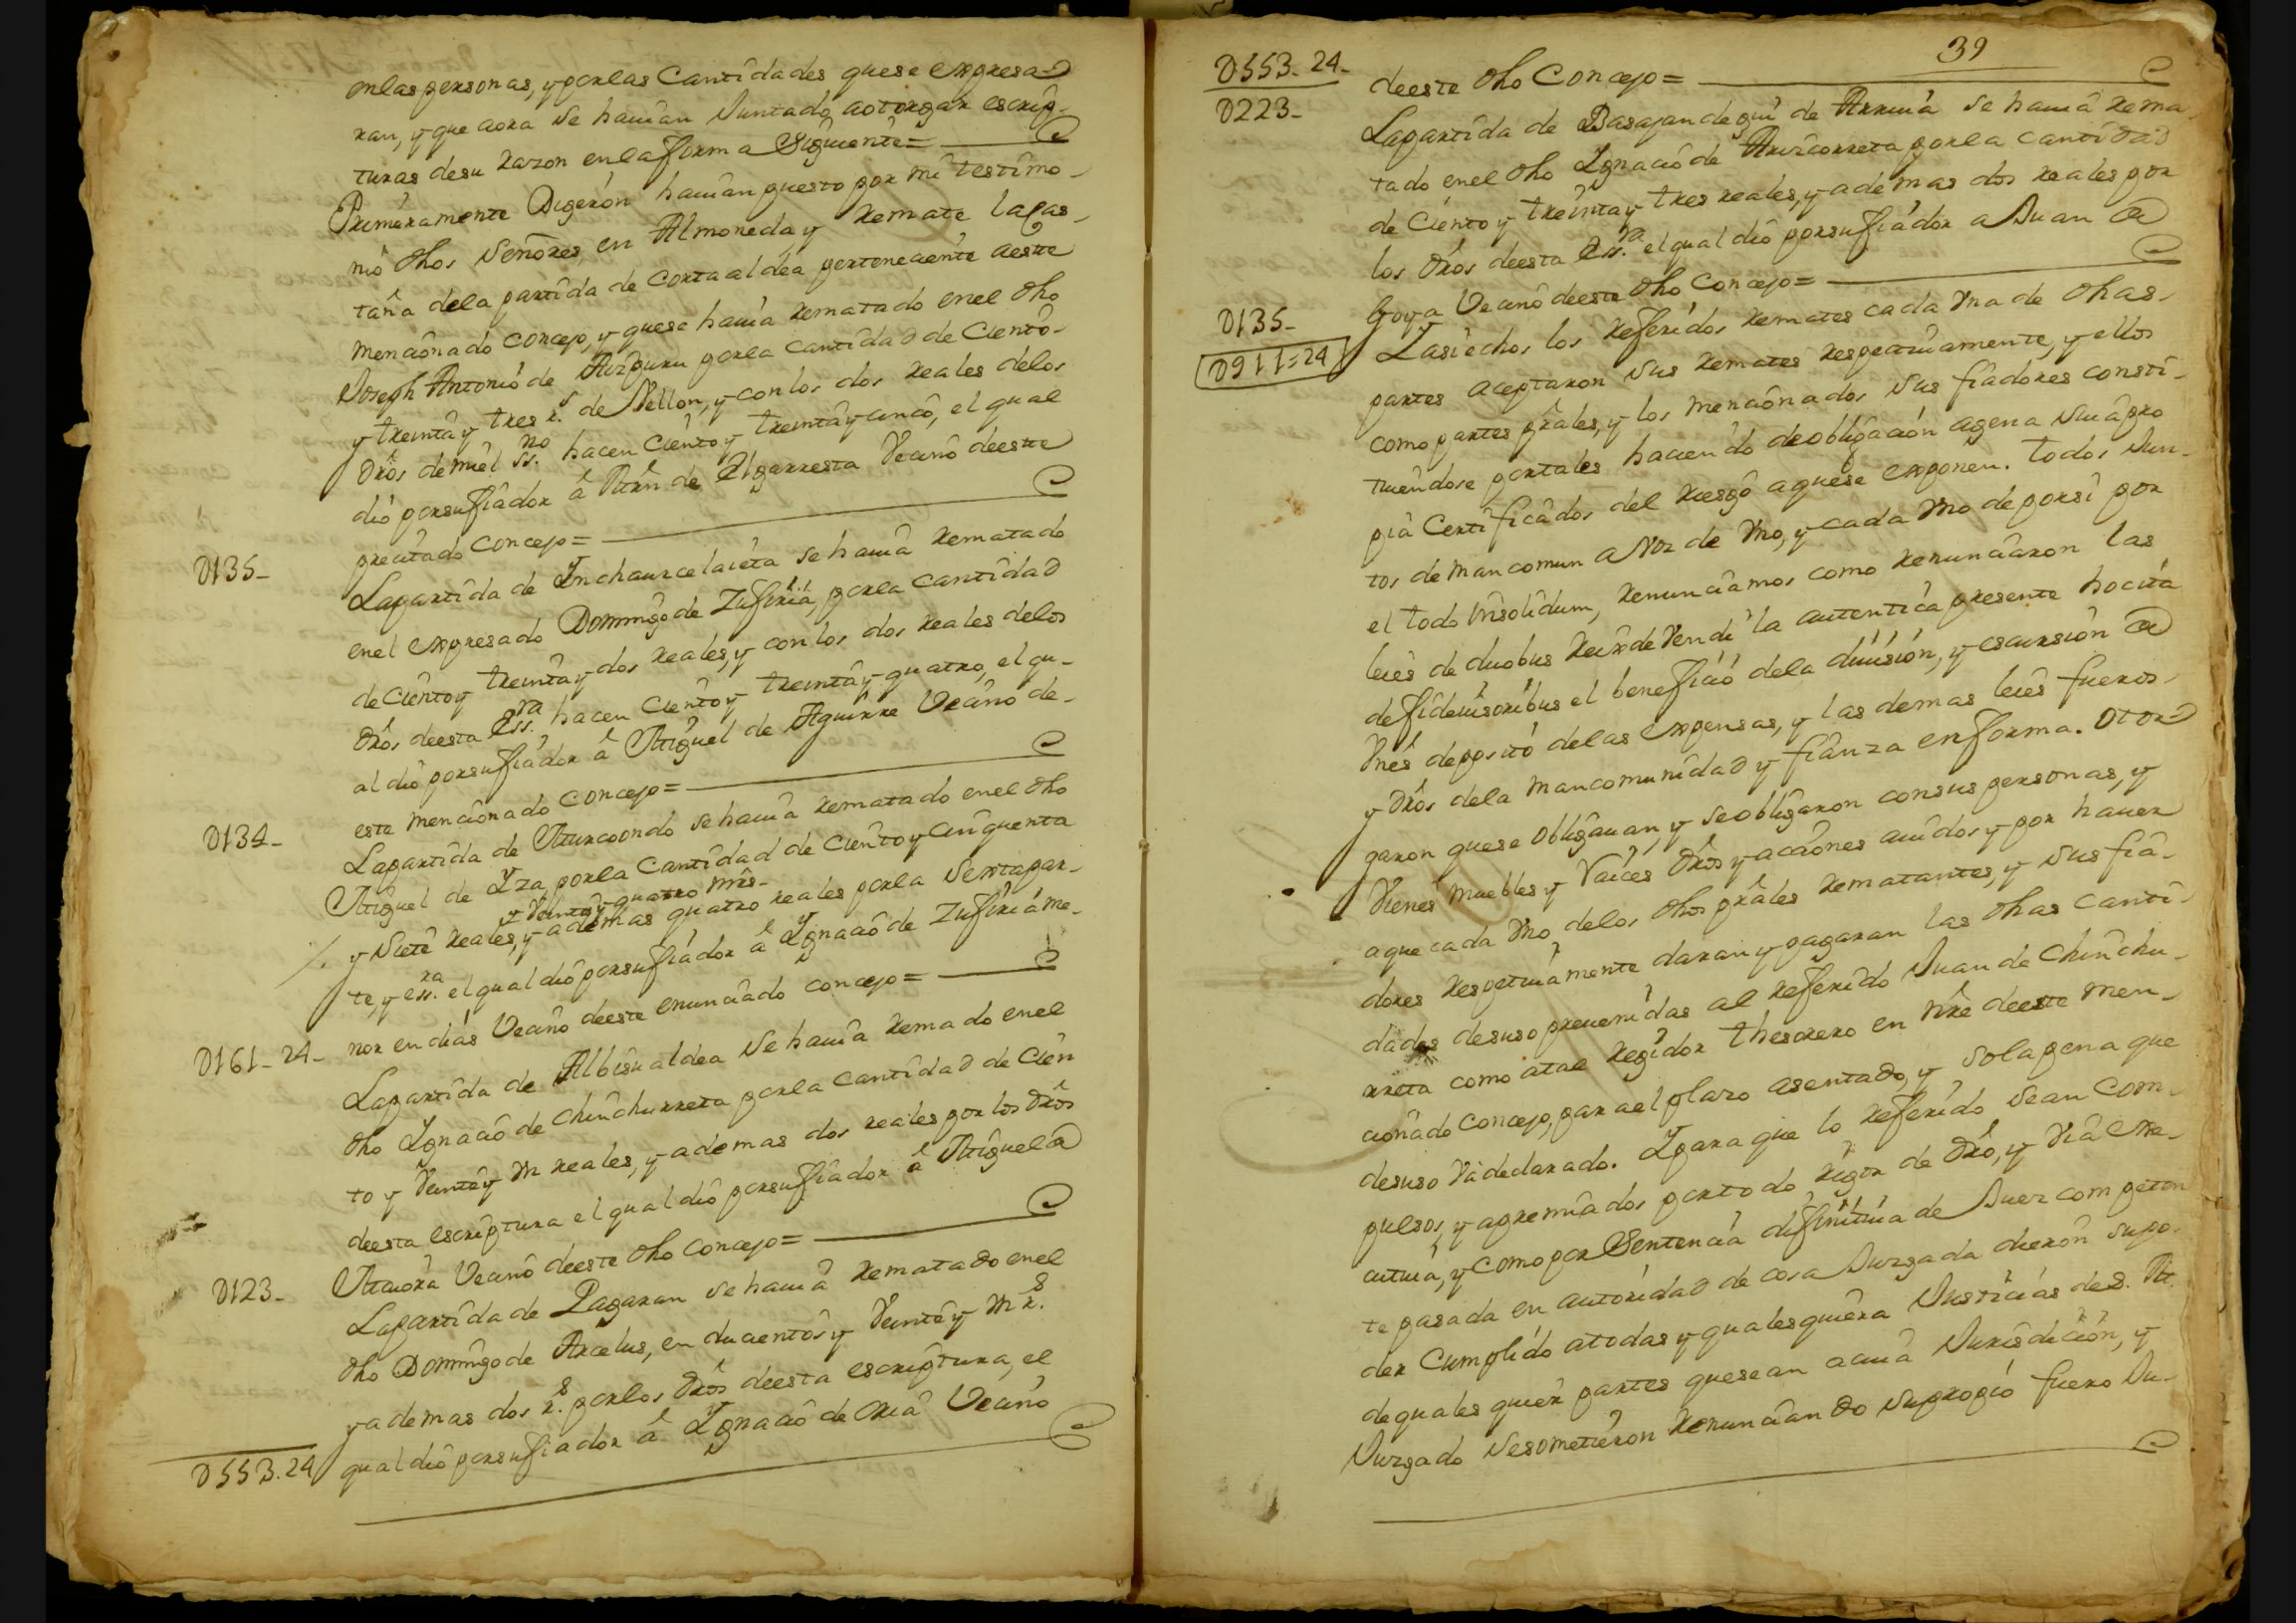 en las personas, y por las Cantidades que se expresa-
ran, y que aora se hauian Juntado aotorgar escrip-
turas desu razon en la forma Siguiente=
Primeramente Digeron hauian puesto por mi testimo-
nio dhos Señores en Almoneda, y remate la Cas-
taña dela partida de Cortaaldea perteneciente aeste
mencionado concejo, y que se hauia rematado en el dho
Joseph Antonio de Aizpuru por la cantidad de Ciento-
y treinta y tres r.s de Vellon, y con los dos reales delos
dros de miel ss.no hacen ciento y treinta y cinco, el qual
dio por su fiador â Mrn de Elgarresta Vecino deeste
precitado Concejo=
D135- La partida de Inchaurcelaieta se hauia rematado
en el expresado Domingo de Zufiria, por la cantidad
de Ciento y treinta y dos reales, y con los dos reales delos
dros deesta Ess.ra hacen Ciento y treinta y quatro, el qu-
al dio por su fiador â Miguel de Aguirre Vecino de-
este mencionado Concejo=
D134- La partida de Iturcoondo se hauia rematado en el dho
Miguel de Yza, por la Cantidad de Ciento y Cinquenta
y Veinte y quatro mrs-
y Siete reales, y ademas quatro reales por la Sexta par-
te, y ess.ra el qual dio por su fiador â Ygnacio de Zufiria me-
nor en dias Vecino deeste enunciado concejo=
D161-24- La partida de Albisualdea Se hauia remado en el
dho Ygnacio de Chinchurreta por la Cantidad de Cien
to y Veinte y Vn reales, y ademas dos reales por los dros
deesta escriptura el qual dio por su fiador â Miguel de
D123- Vecino deeste dho Concejo=
La partida de Pagaran se hauia rematado en el
dho Domingo de Arcelus, en ducientos y Veinte y Vn r.s
y ademas dos r.s por los dros deesta escriptura, el
qual dio por su fiador â Ygnacio de Oria Vecino
D553.24
39
D553-24- deeste dho Concejo=
D223- La partida de Basajandegui de Arriua Se hauia rema
tado en el dho Ygnacio de Aricorreta por la Cantidad
de Ciento y treinta y tres reales, y ademas dos reales por
los dros deesta Ess.ra el qual dio por su fiador a Juan de
D135- Goya Vecino deeste dho Concejo=
D911=24 Y asi echos los referidos remates cada Vna de dhas-
partes aceptaron Sus remates respectiuamente, y ellos
como partes prâles, y los mencionados Sus fiadores consti-
tuiendose por tales haciendo de obligación agena Suia pro
pia Certificados del riesgo aque se exponen. todos Jun-
tos de mancomun a Voz de Vno, y cada Vno de por si por
el todo Insolidum, renunciamos como renunciaron las
leies de duobus reix de Vendi la autentica presente hocita
de fideiusoribus el beneficio dela diuision, y escursion de
Vnes deposito delas expensas, y las demas leies fueros-
y dros dela mancomunidad y fianza en forma. Otor-
garon que se Obligauan, y se obligaron con sus personas, y
Vienes muebles y raices dros y acciones auidos y por hauer
aque cada Vno delos dhos prâles rematantes, y Sus fia-
dores respetiuamente daran y pagaran las dhas Canti-
dades desuso preuenidas al referido Juan de Chinchu-
rreta como atal Regidor thesorero en nre deeste men-
cionado Concejo, para el plazo asentado, y solapena que
desuso Va declarado. Y para que lo referido Sean Com-
pulsos, y apremiados por todo rigor de dro, y Via Exe-
cutiua, y como por Sentencia difinitiua de Juez competen
te pasada en autoridad de cosa Juzgada dieron supo-
der Cumplido atodas y qualesquiera Justicias de S. M.
de quales quier partes que sean acuia Jurisdicion, y
Juzgado Sesometieron renunciando Su propio fuero Ju-